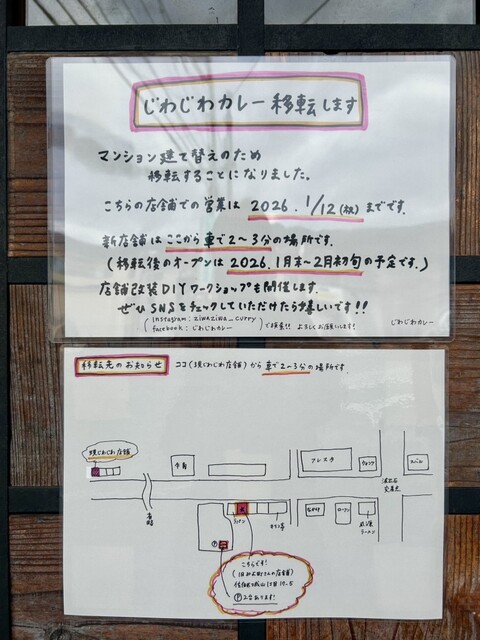 じわじわカレー移転します
マンション建て替えのため
移転することになりました。
こちらの店舗での営業は 2026. 1/12(祝)までです。
新店舗は ここから車で2〜3分の場所です。
(移転後のオープンは 2026. 1月末〜2月初旬の予定です。)
店舗改装DIYワークショップも開催します。
ぜひSNSをチェックしていただけたら嬉しいです!!
(Instagram: ziwaziwa_curry
facebook: じわじわカレー)で検索!! よろしくお願いします!
じわじわカレー
移転先のお知らせ ココ(現じわじわ店舗)から車で2〜3分の場所です。
現じわじわ店舗
牛角
フレスタ
ウォンツ
交差点
ローソン
ラーメン
こちらです!
P 2台あります!